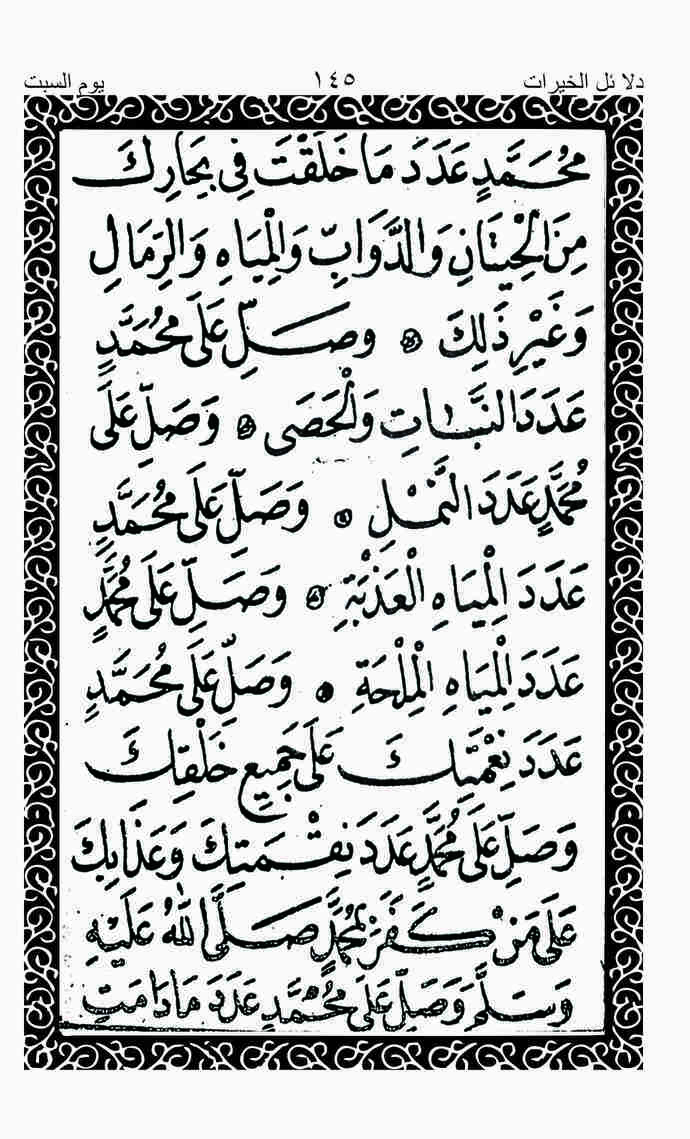 دلائل الخيرات ١٤٥ يوم السبت
مُحَمَّدٍ عَدَدَ مَا خَلَقْتَ فِي بِحَارِكَ
مِنَ الْحِيتَانِ وَالدَّوَابِّ وَالْمِيَاهِ وَالرِّمَالِ
وَغَيْرِ ذَلِكَ وَصَلِّ عَلَى مُحَمَّدٍ
عَدَدَ النَّبَاتِ وَالْحَصَى وَصَلِّ عَلَى
مُحَمَّدٍ عَدَدَ النَّمْلِ وَصَلِّ عَلَى مُحَمَّدٍ
عَدَدَ الْمِيَاهِ الْعَذْبَةِ وَصَلِّ عَلَى مُحَمَّدٍ
عَدَدَ الْمِيَاهِ الْمِلْحَةِ وَصَلِّ عَلَى مُحَمَّدٍ
عَدَدَ نِعْمَتِكَ عَلَى جَمِيعِ خَلْقِكَ
وَصَلِّ عَلَى مُحَمَّدٍ عَدَدَ نِقْمَتِكَ وَعَذَابِكَ
عَلَى مَنْ كَفَرَ بِمُحَمَّدٍ صَلَّى اللهُ عَلَيْهِ
وَسَلَّمَ وَصَلِّ عَلَى مُحَمَّدٍ عَدَدَ مَا دَامَتِ